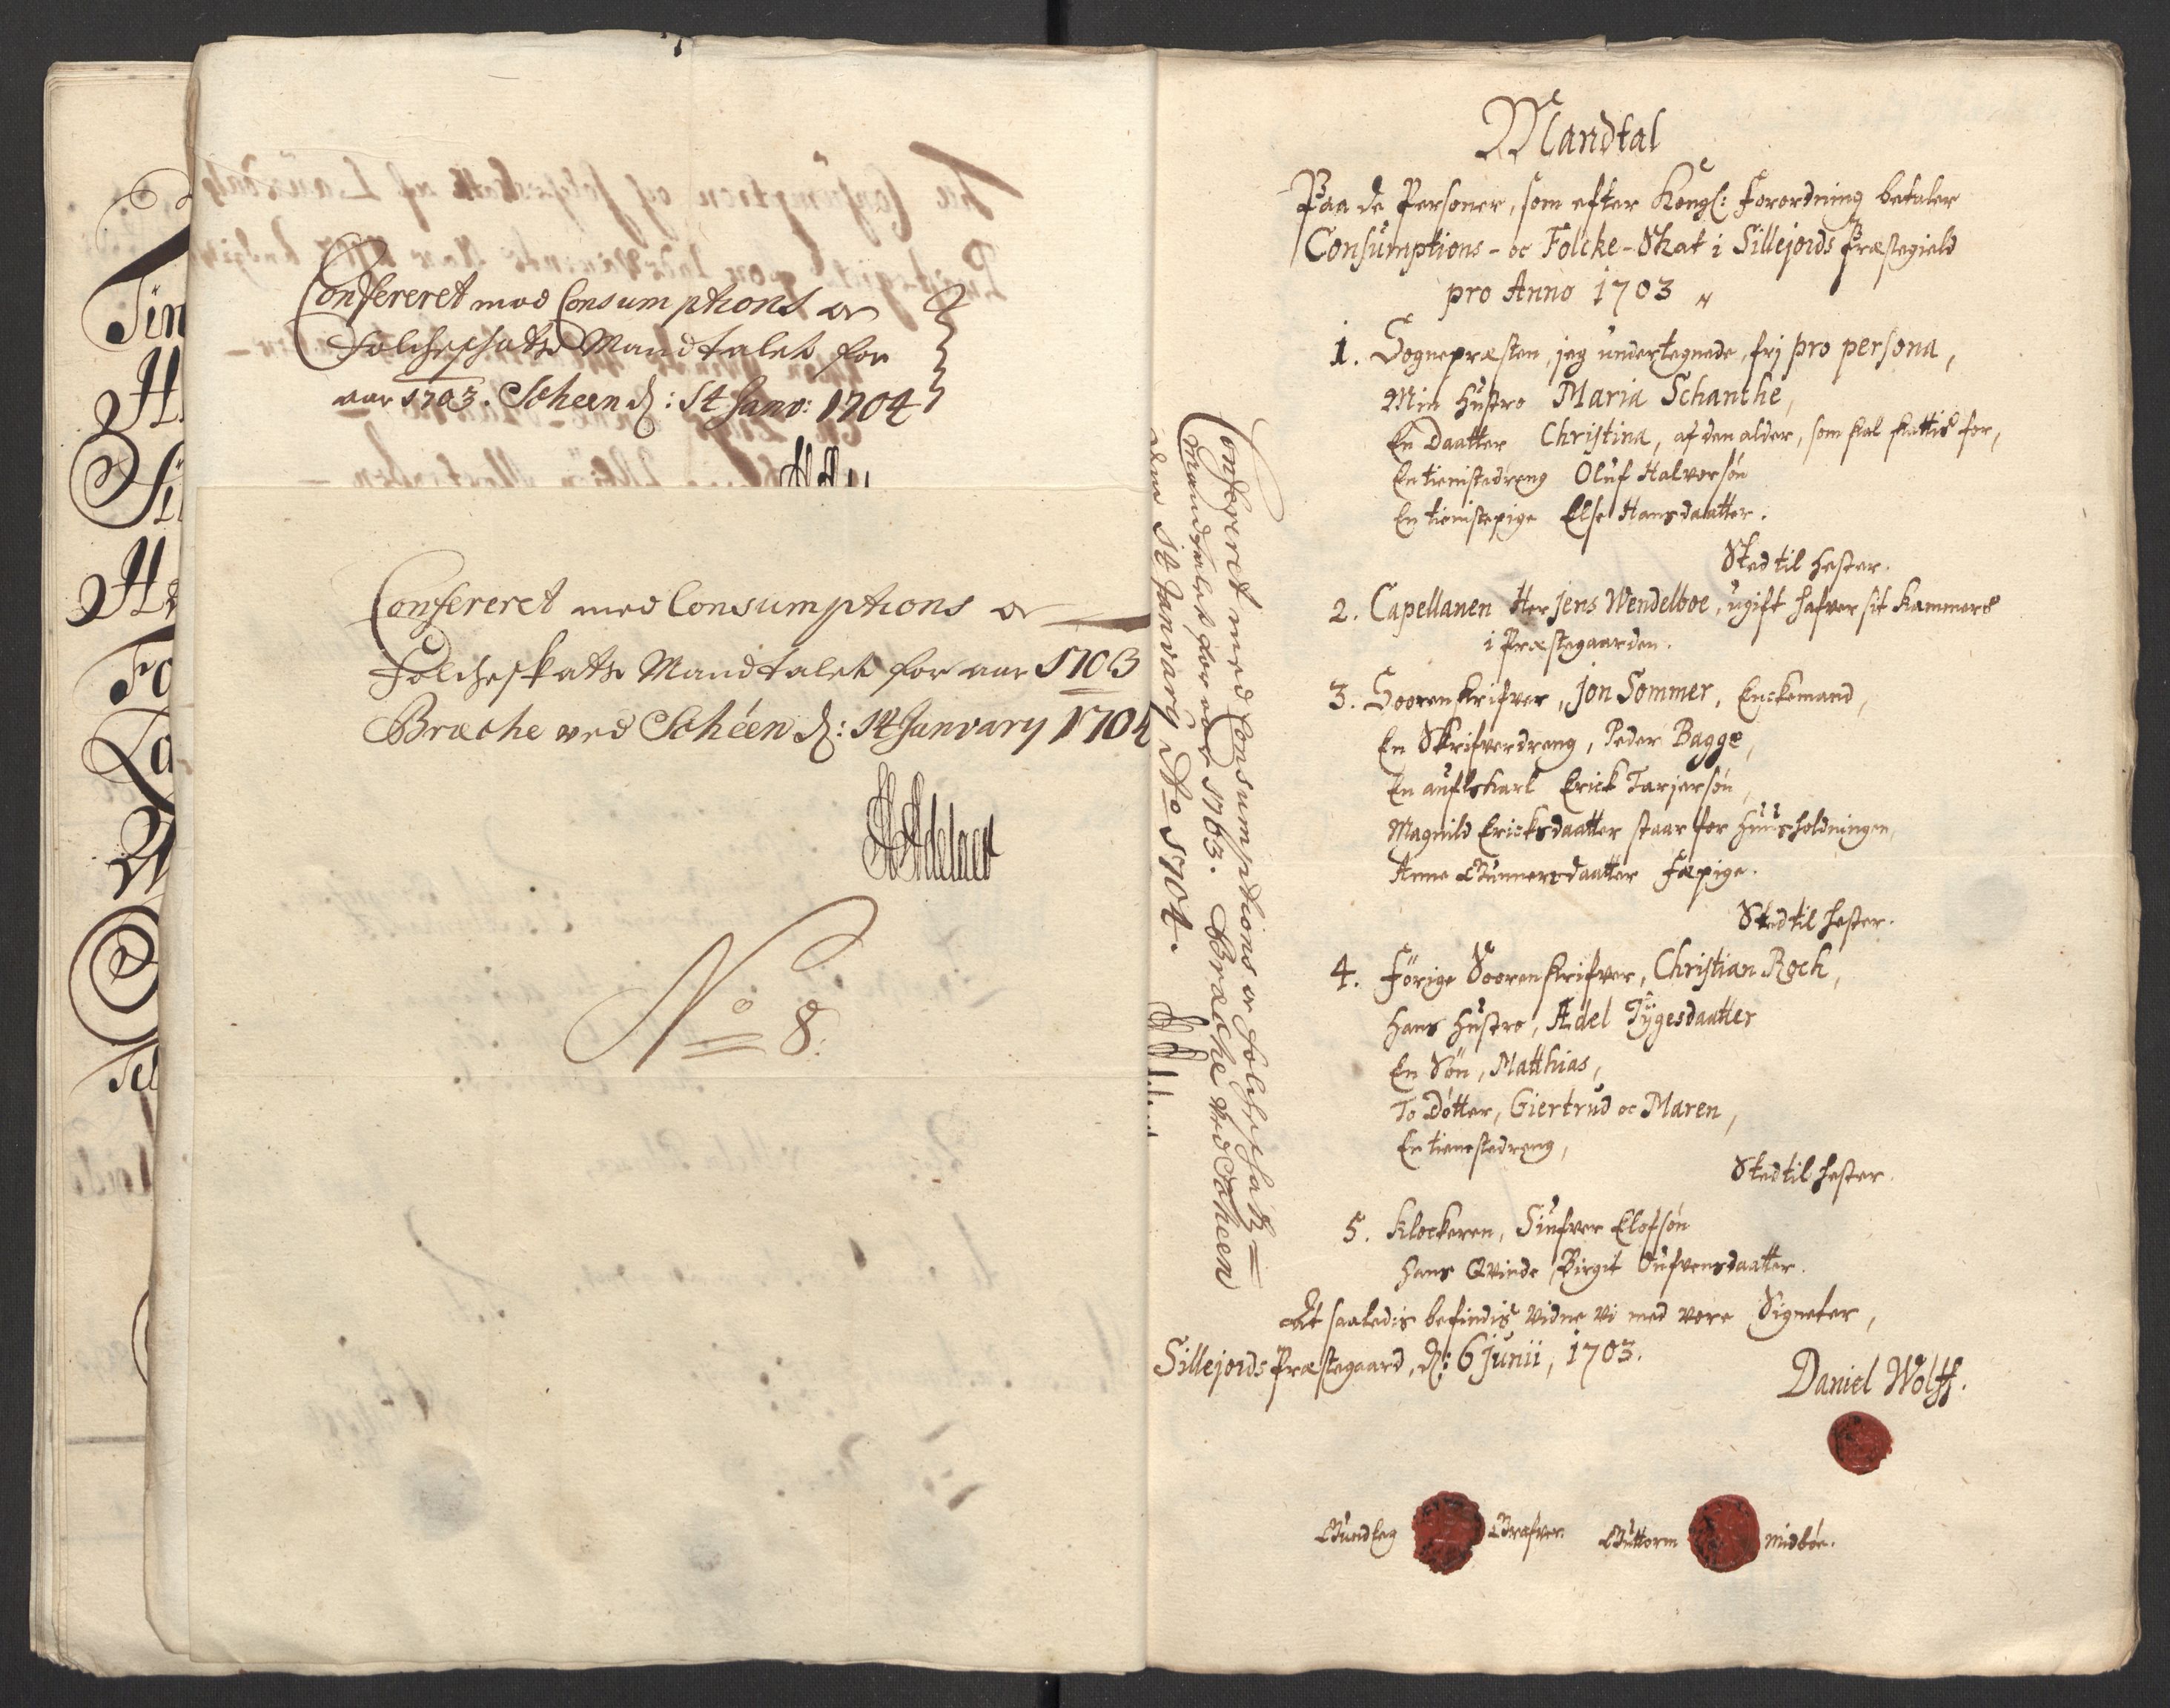 Confereret med Consumptions oc
Folcheschatts Mandtalet for
aar 1703. Scheen d: 1t Janv: 1704
Confereret med Consumptions oc
Folcheskatts Mandtalet for aar 1703
Brache ved Schéen d: 1t January 1704
HAdelaer
No 8:
Confereret med Consumptions oc folcheschatz
Mandtalet for aar 1703. Brache ved Scheen
den 1t January Ao 1704.
Mandtal
Paa de Personer, som efter Kongl: Forordning betaler
Consumptions- oc Folcke-Skat i Sillejords Præstegield
pro Anno 1703
1. Sognepræsten, jeg undertegnede, frj pro persona,
Min Hustro Maria Schanche,
En Daatter Christina, af den alder, som skal skattis for,
En tienistedreng Oluf Halvorsøn
En tienistepige Else Hansdaatter.
Sted til Hester.
2. Capellanen Her Jens Wendelboe, ugift hafver sit Kammers
i Præstegaarden.
3. Soorenskrifver, Jon Sommer, Enckemand,
En Skrifverdreng, Peder Bagge,
En auflskarl Erick Tarjersøn,
Magnild Ericksdaatter staar for Huusholdningen,
Anne Gunnersdaatter Fæpige.
Sted til Hester.
4. Førige Soorenskrifver, Christian Roch,
Hans Hustro, Adel Tÿgesdaatter
En Søn, Matthias,
To Døtter, Giertrud oc Maren,
En tienestedreng,
Sted til Hester.
5. Klockeren, Siufver Elofsøn
Hans Qvinde Birgit Oufvensdaatter.
At saaledis befindis vidne vi med vore Signeter,
Sillejords Præstegaard, d: 6 Junii, 1703.
Daniel Wolff.
Gundleg Grafver. Guttorm Midbøe.